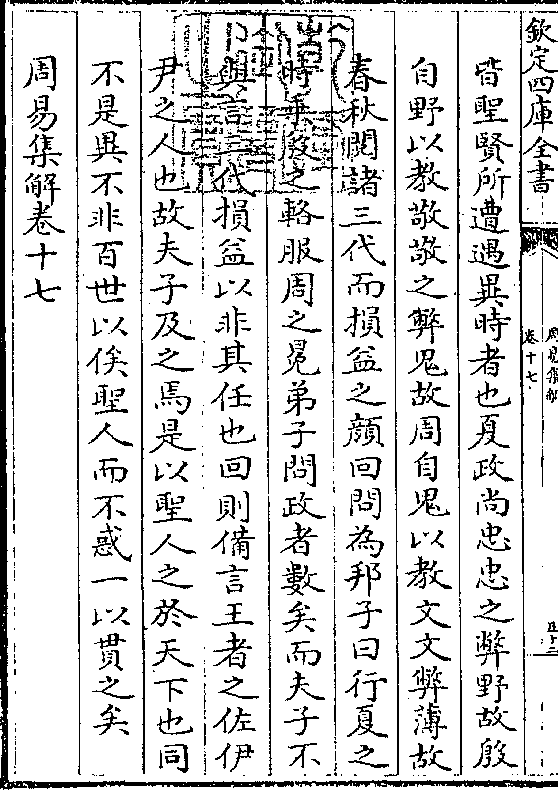 欽定四庫全書
周易集解
卷十七
皆聖賢所遭遇異時者也夏政尚忠忠之弊野故殷
自野以教敬敬之弊鬼故周自鬼以教文文弊薄故
春秋閱諸三代而損益之顔回問為邦子曰行夏之
時乗殷之輅服周之冕弟子問政者數矣而夫子不
與言三代損益以非其任也回則備言王者之佐伊
尹之人也故夫子及之焉是以聖人之於天下也同
不是異不非百世以俟聖人而不惑一以貫之矣
周易集解卷十七